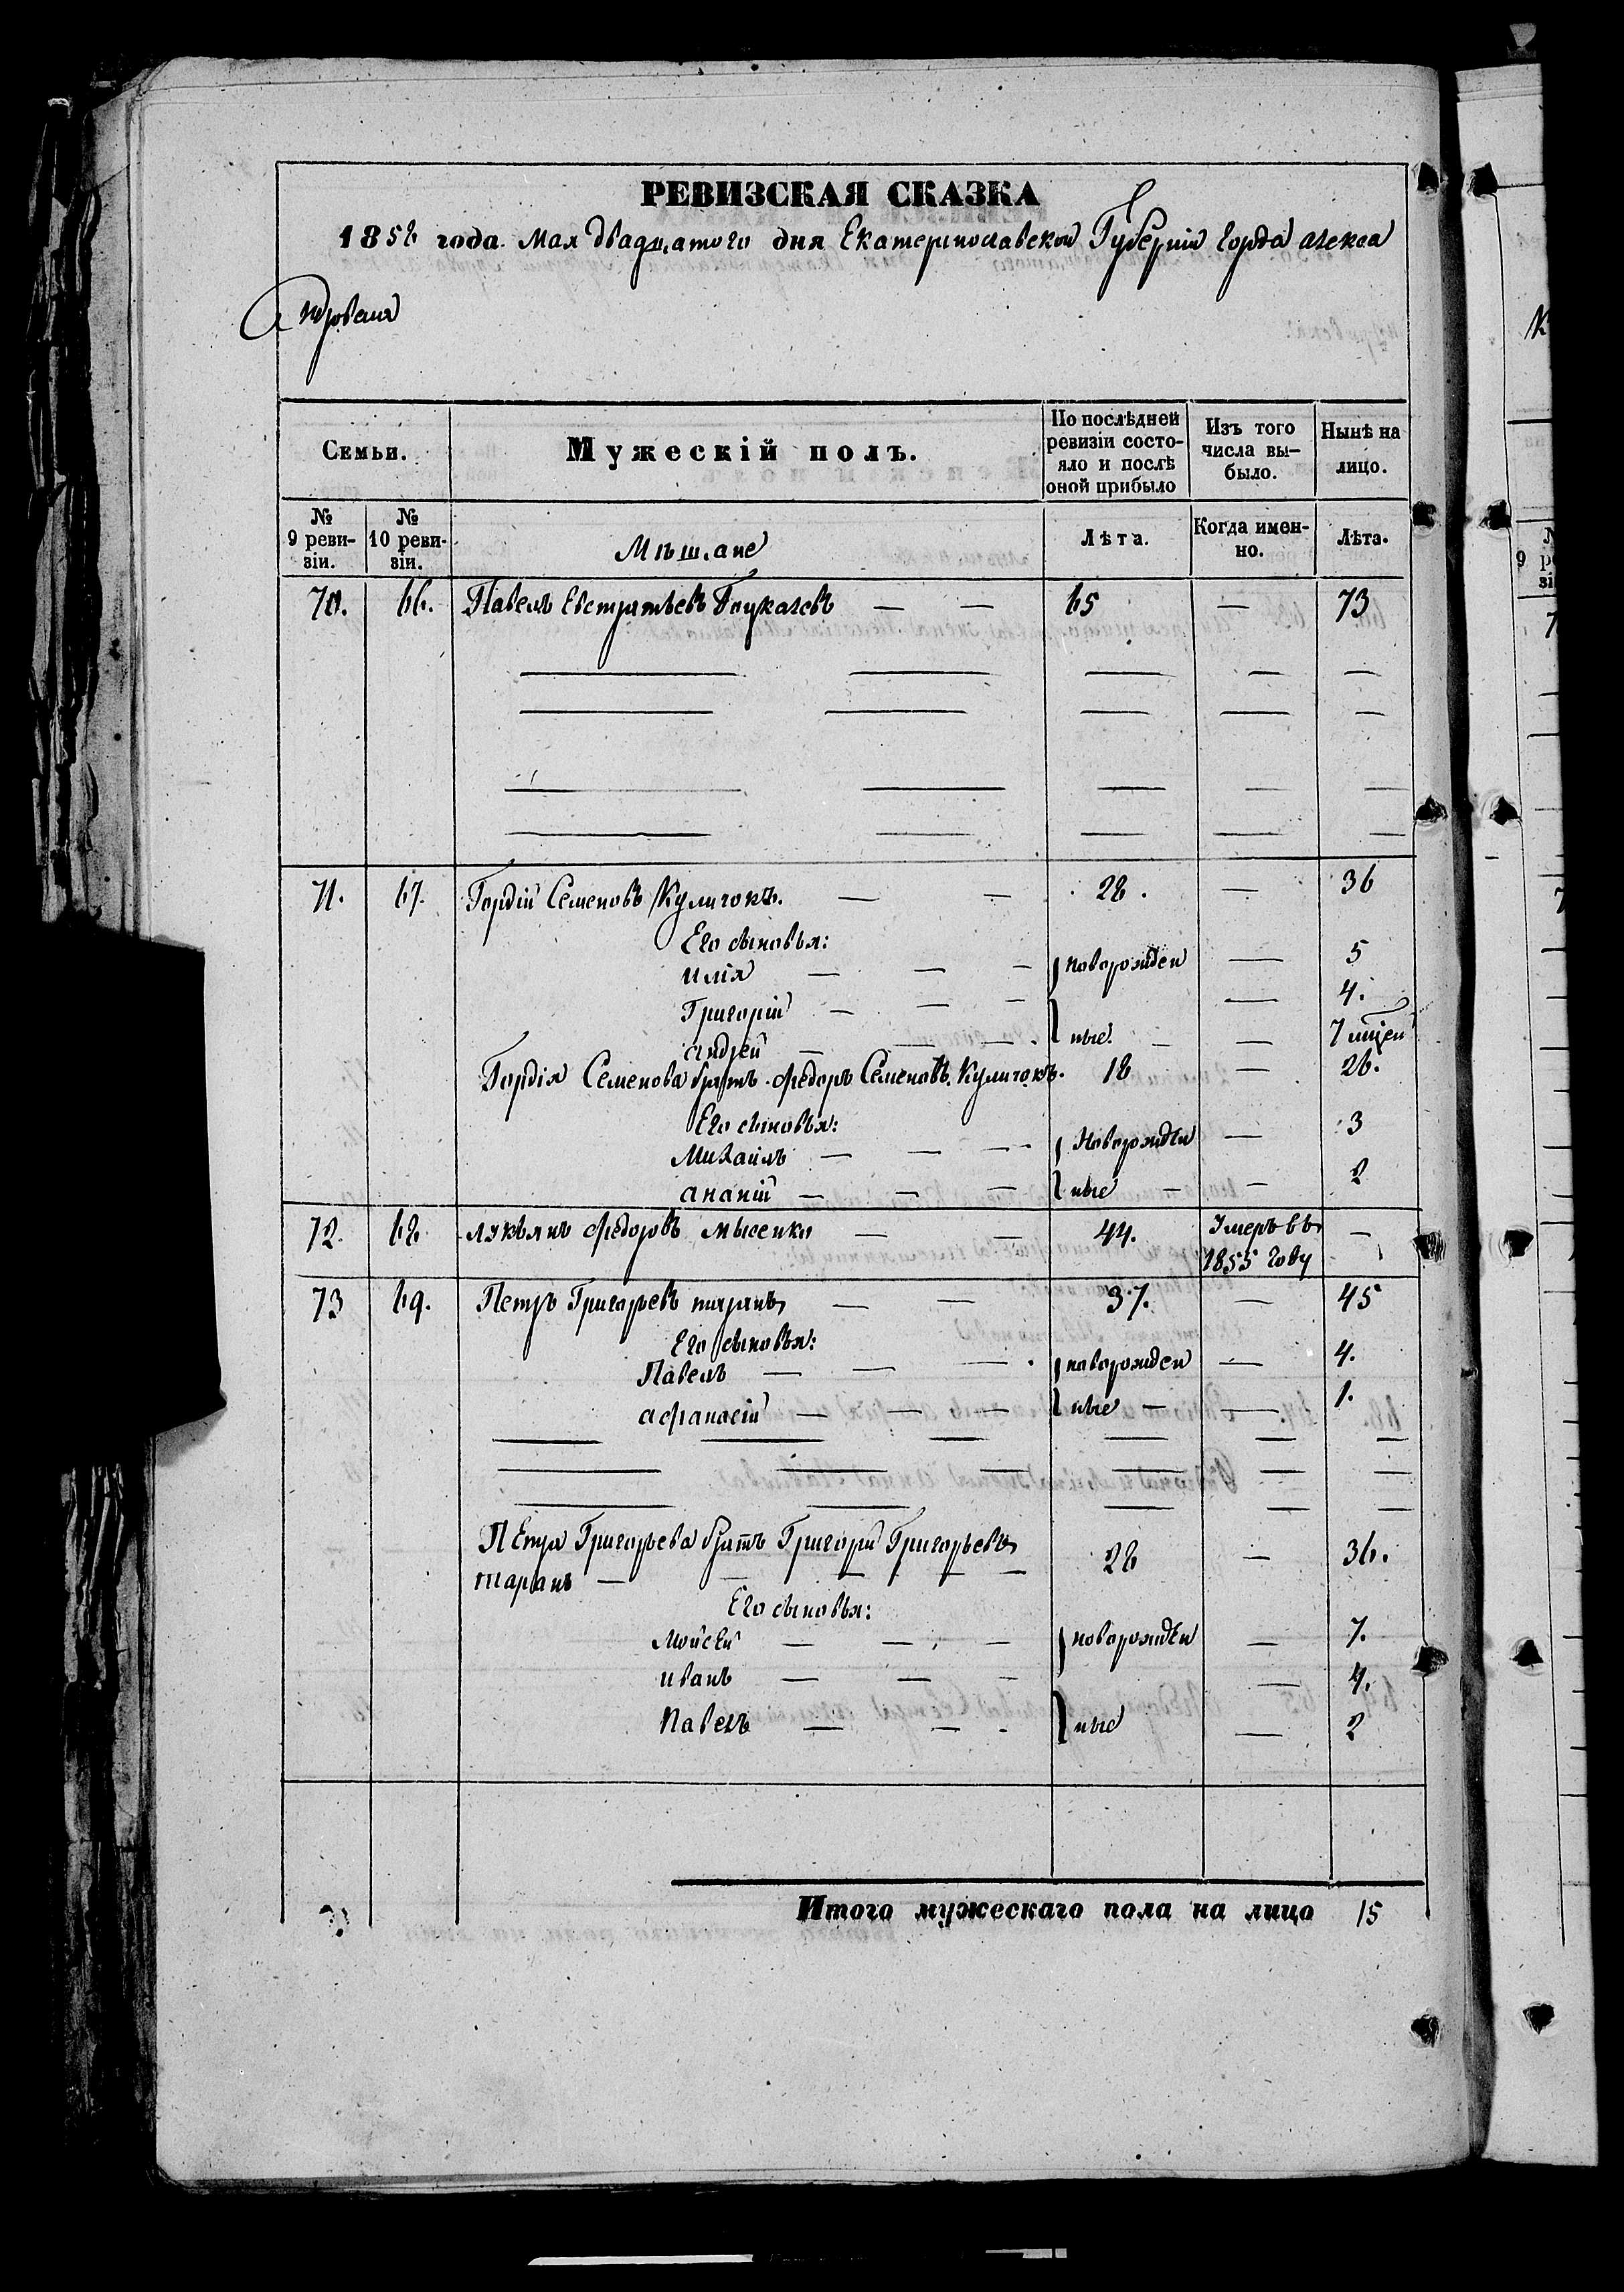 РЕВИЗСКАЯ СКАЗКА
1858 года Мая двадцатого дня Екатеринославской Губерніи города Алекса
ндровска
Семьи.
Мужескій полъ.
По послѣдней ревизіи состояло и послѣ оной прибыло
Изъ того числа выбыло.
Нынѣ на лицо.
№ 9 ревизіи.
№ 10 ревизіи.
Мѣщане
Лѣта.
Когда именно.
Лѣта.
70. 66. Павелъ Евстратьевъ — — 65 — 73
71. 67. Гордій Семеновъ Куличокъ. — — 28. — 36
Его сыновья:
Илія — — — новорожден — 5
Григорій — — — — 4.
Андрей — — — ные. — — 7 мцей
Гордія Семенова братъ Федоръ Семеновъ Куличокъ. 18 — 26.
Его сыновья:
Михаилъ — — — Новорожден — 3
Ананій — — — ные — — 2
72. 68. Лукьянъ Федоровъ Мысенко — — 44. Умеръ въ —
1855 году
73 69. Петръ Григорьевъ Таранъ — — 37. — 45
Его сыновья:
Павелъ — — — новорожден — 4.
Афанасій — — — ные — — 1.
Петра Григорьева братъ Григорій Григорьевъ 28 — 36.
Таранъ — — — — —
Его сыновья:
Мойсей — — — новорожден — 7.
Иванъ — — — — 4.
Павелъ — — — ные — 2
Итого мужескаго пола на лицо 15